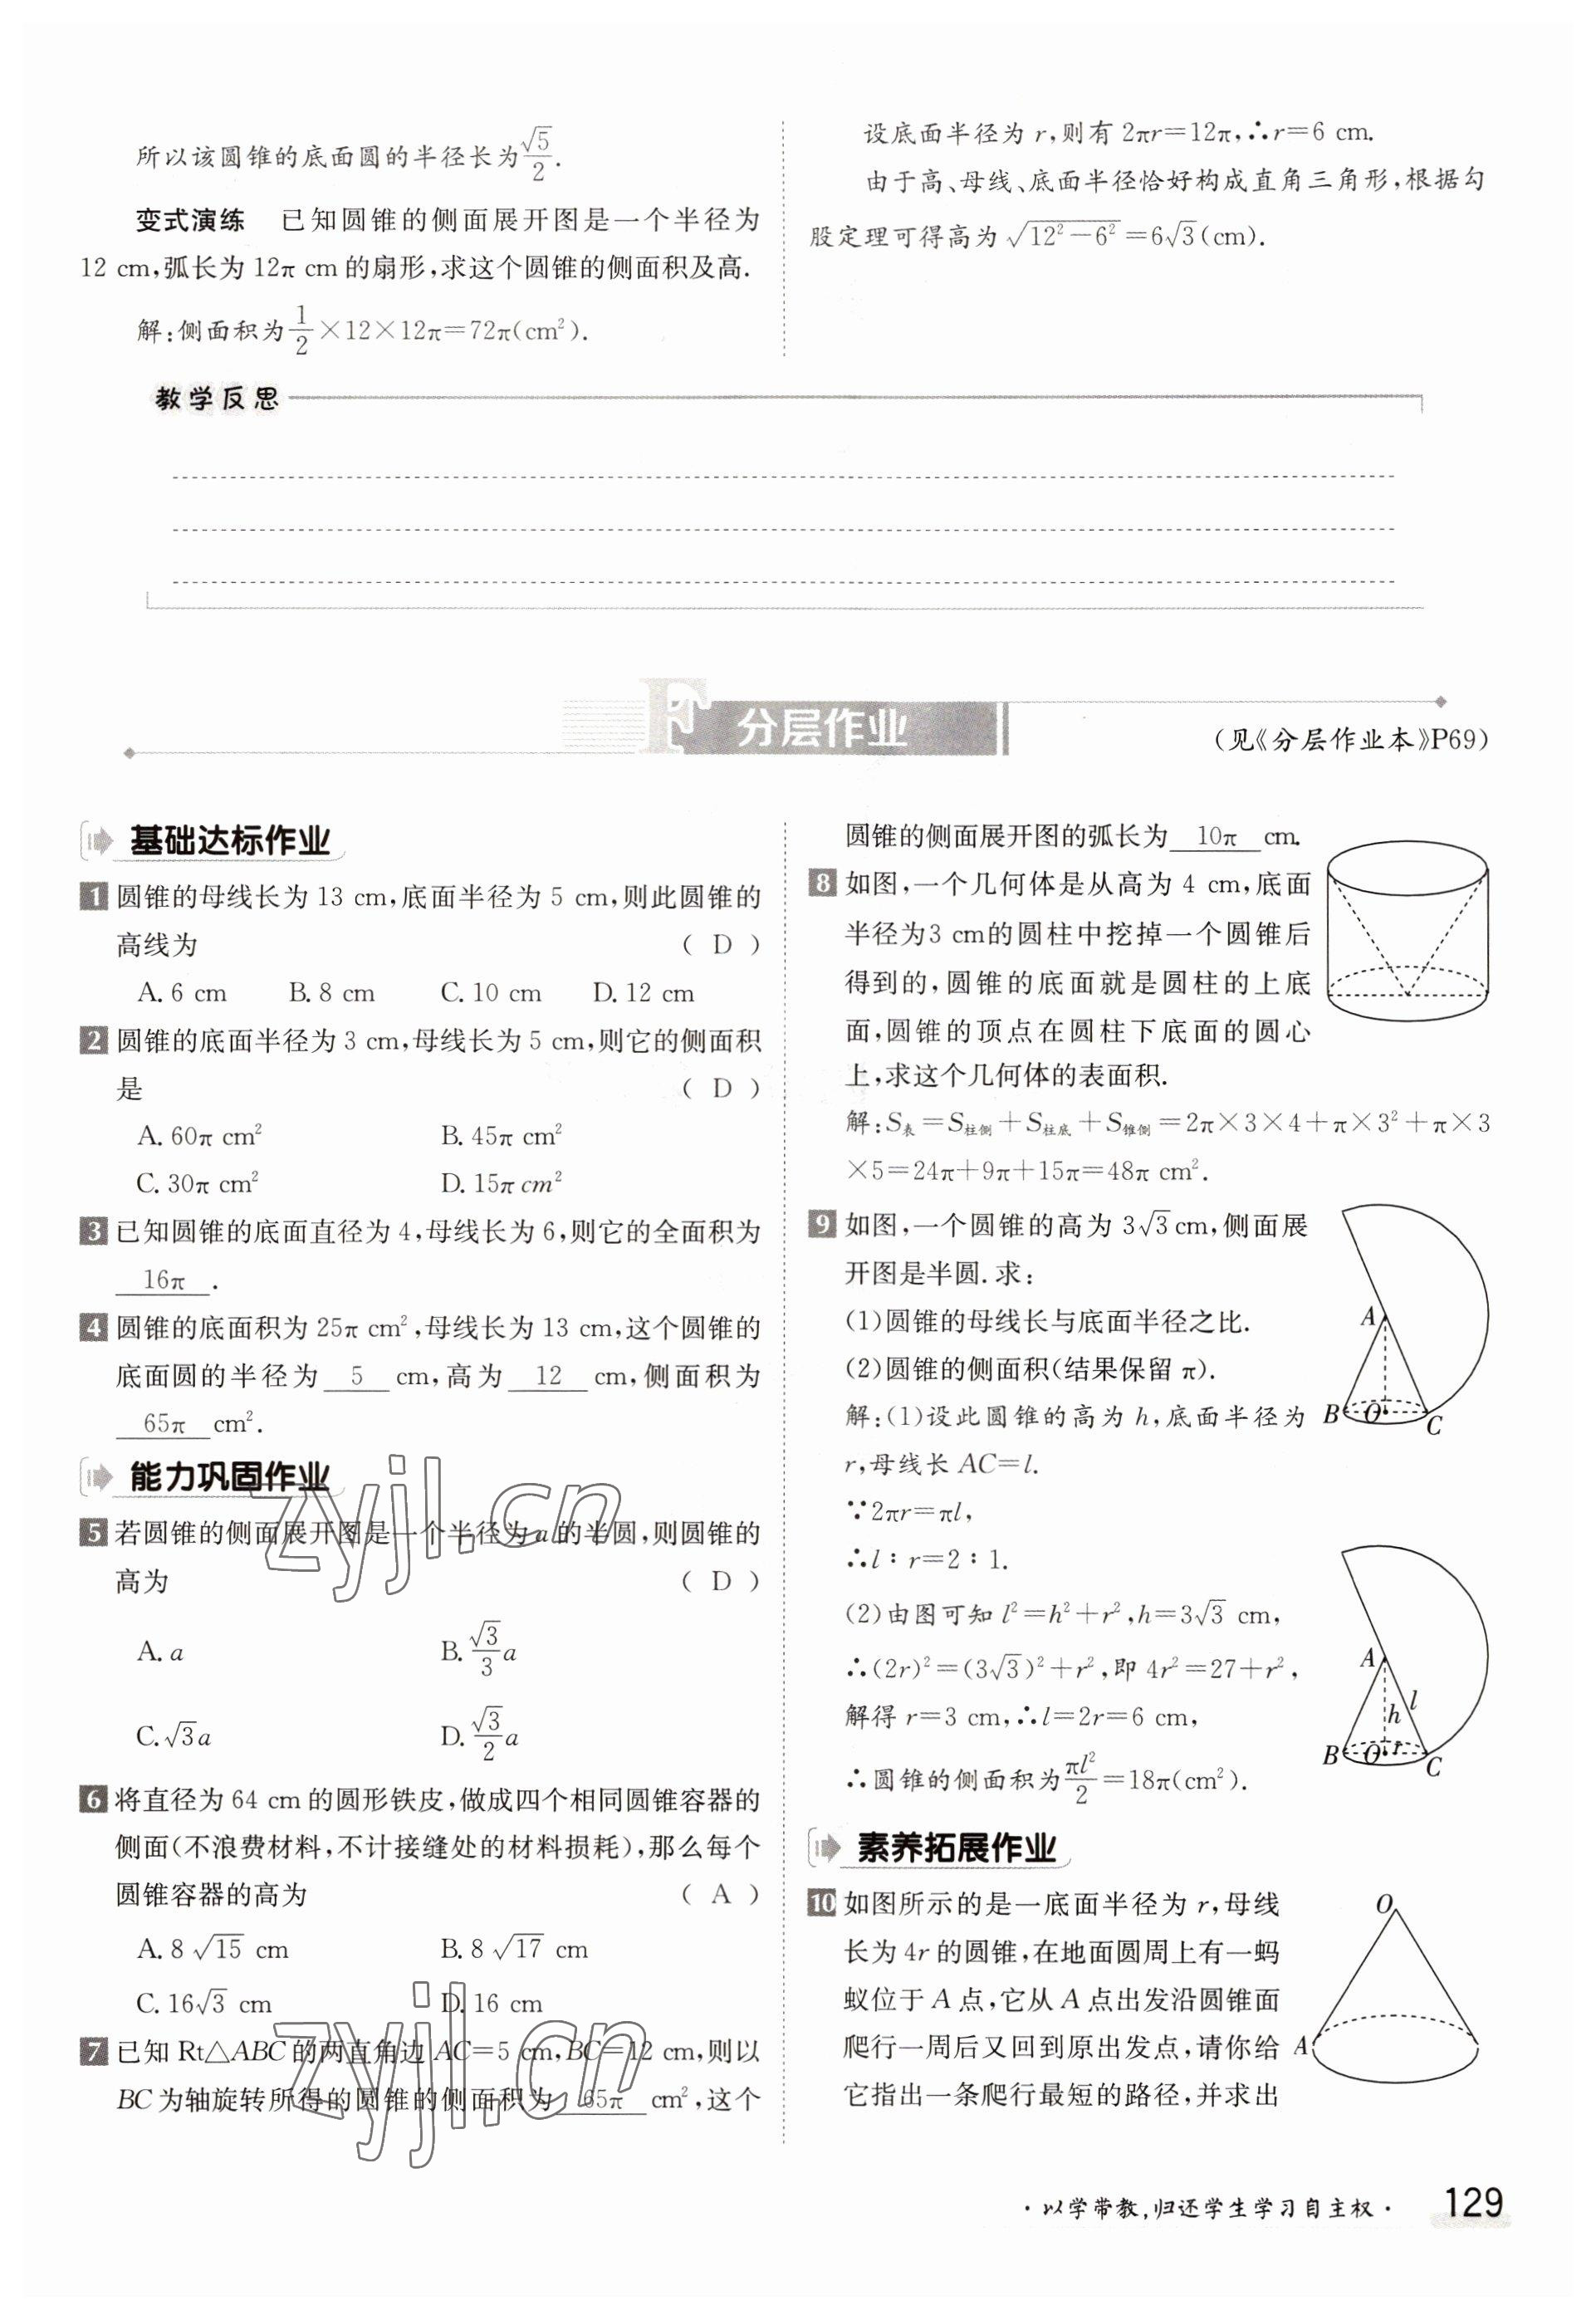 所以该圆锥的底面圆的半径长为√5/2.
变式演练 已知圆锥的侧面展开图是一个半径为
12 cm,弧长为 12π cm 的扇形,求这个圆锥的侧面积及高.
解:侧面积为1/2×12×12π=72π(cm²).
设底面半径为 r,则有 2πr=12π,∴r=6 cm.
由于高、母线、底面半径恰好构成直角三角形,根据勾
股定理可得高为 √(12²-6²)=6√3(cm).
教学反思
F 分层作业
(见《分层作业本》P69)
基础达标作业
1 圆锥的母线长为 13 cm,底面半径为 5 cm,则此圆锥的
高线为 ( D )
A. 6 cm B. 8 cm C. 10 cm D. 12 cm
2 圆锥的底面半径为 3 cm,母线长为 5 cm,则它的侧面积
是 ( D )
A. 60π cm² B. 45π cm²
C. 30π cm² D. 15π cm²
3 已知圆锥的底面直径为 4,母线长为 6,则它的全面积为
16π .
4 圆锥的底面积为 25π cm²,母线长为 13 cm,这个圆锥的
底面圆的半径为 5 cm,高为 12 cm,侧面积为
65π cm².
能力巩固作业
5 若圆锥的侧面展开图是一个半径为 a 的半圆,则圆锥的
高为 ( D )
A. a B. √3/3 a
C. √3a D. √3/2 a
6 将直径为 64 cm 的圆形铁皮,做成四个相同圆锥容器的
侧面(不浪费材料,不计接缝处的材料损耗),那么每个
圆锥容器的高为 ( A )
A. 8√15 cm B. 8√17 cm
C. 16√3 cm D. 16 cm
7 已知 Rt△ABC 的两直角边 AC=5 cm,BC=12 cm,则以
BC 为轴旋转所得的圆锥的侧面积为 65π cm²,这个
圆锥的侧面展开图的弧长为 10π cm.
8 如图,一个几何体是从高为 4 cm,底面
半径为3 cm的圆柱中挖掉一个圆锥后
得到的,圆锥的底面就是圆柱的上底
面,圆锥的顶点在圆柱下底面的圆心
上,求这个几何体的表面积.
解:S表=S柱侧+S柱底+S锥侧=2π×3×4+π×3²+π×3
×5=24π+9π+15π=48π cm².
9 如图,一个圆锥的高为 3√3cm,侧面展
开图是半圆.求:
(1)圆锥的母线长与底面半径之比.
(2)圆锥的侧面积(结果保留 π).
A
B O C
解:(1)设此圆锥的高为 h,底面半径为
r,母线长 AC=l.
∵2πr=πl,
∴l∶r=2∶1.
(2)由图可知 l²=h²+r²,h=3√3 cm,
∴(2r)²=(3√3)²+r²,即 4r²=27+r²,
解得 r=3 cm,∴l=2r=6 cm,
∴圆锥的侧面积为πl²/2=18π(cm²).
A
l
h
B O r C
素养拓展作业
10 如图所示的是一底面半径为 r,母线
长为 4r 的圆锥,在地面圆周上有一蚂
蚁位于 A 点,它从 A 点出发沿圆锥面
爬行一周后又回到原出发点,请你给
它指出一条爬行最短的路径,并求出
O
A
zyjl.cn
zyjl.cn
·以学带教,归还学生学习自主权· 129